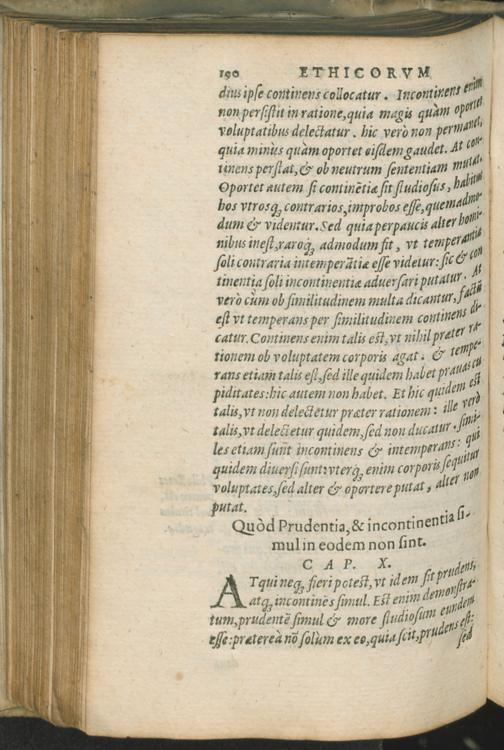 190 ETHICORVM
dius ipse continens collocatur. Incontinens enim
non persistit in ratione, quia magis quàm oportet
voluptatibus delectatur. hic verò non permanet,
quia minùs quàm oportet eisdem gaudet. At con-
tinens perstat, & ob neutrum sententiam mutat.
Oportet autem si continẽtia sit studiosus, habitus
hos vtrosq; contrarios, improbos esse, quemadmo-
dum & videntur. Sed quia perpaucis alter homi-
nibus inest, raroq; admodum fit, vt temperantia
soli contraria intemperãtia esse videtur: sic & con
tinentia soli incontinentia aduersari putatur. At
verò cùm ob similitudinem multa dicantur, factũ
est vt temperans per similitudinem continens di-
catur. Continens enim talis est, vt nihil præter ra-
tionem ob voluptatem corporis agat. & tempe-
rans etiam talis est, sed ille quidem habet prauas cu
piditates: hic autem non habet. Et hic quidem est
talis, vt non delectetur præter rationem: ille verò
talis, vt delectetur quidem, sed non ducatur. simi-
les etiam sunt incontinens & intemperans: qui
quidem diuersi sunt: vterq; enim corporis sequitur
voluptates, sed alter & oportere putat, alter non
putat.
Quòd Prudentia, & incontinentia si-
mul in eodem non sint.
CAP. X.
ATqui neq; fieri potest, vt idem sit prudens,
atq; incontinẽs simul. Est enim demonstra-
tum, prudentẽ simul & more studiosum eundem
esse: præterea nõ solùm ex eo, quia scit, prudens est:
sed